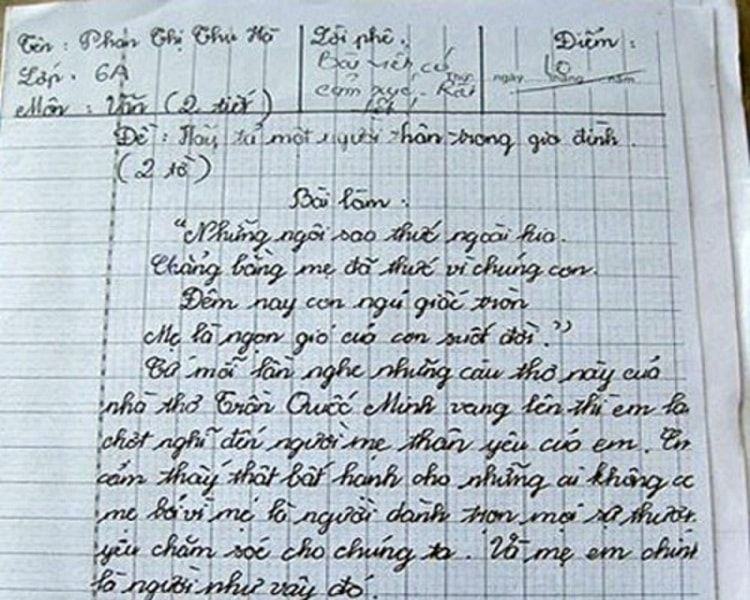 Tên : Phan Thị Thu Hà
Lời phê :
Điểm :
Lớp : 6A
Bài viết có
10
Thứ ngày tháng năm
Môn : Văn (2 tiết)
cảm xúc. Rất
tốt!
Đề : Hãy tả một người thân trong gia đình.
(2 tờ)
Bài làm :
"Những ngôi sao thức ngoài kia.
Chẳng bằng mẹ đã thức vì chúng con.
Đêm nay con ngủ giấc tròn
Mẹ là ngọn gió của con suốt đời."
Cứ mỗi lần nghe những câu thơ này của
nhà thơ Trần Quốc Minh vang lên thì em lạ
chợt nghĩ đến người mẹ thân yêu của em. Em
cảm thấy thật bất hạnh cho những ai không c
mẹ bởi vì mẹ là người dành trọn mọi sự thươn
yêu chăm sóc cho chúng ta. Và mẹ em chín
là người như vậy đó.